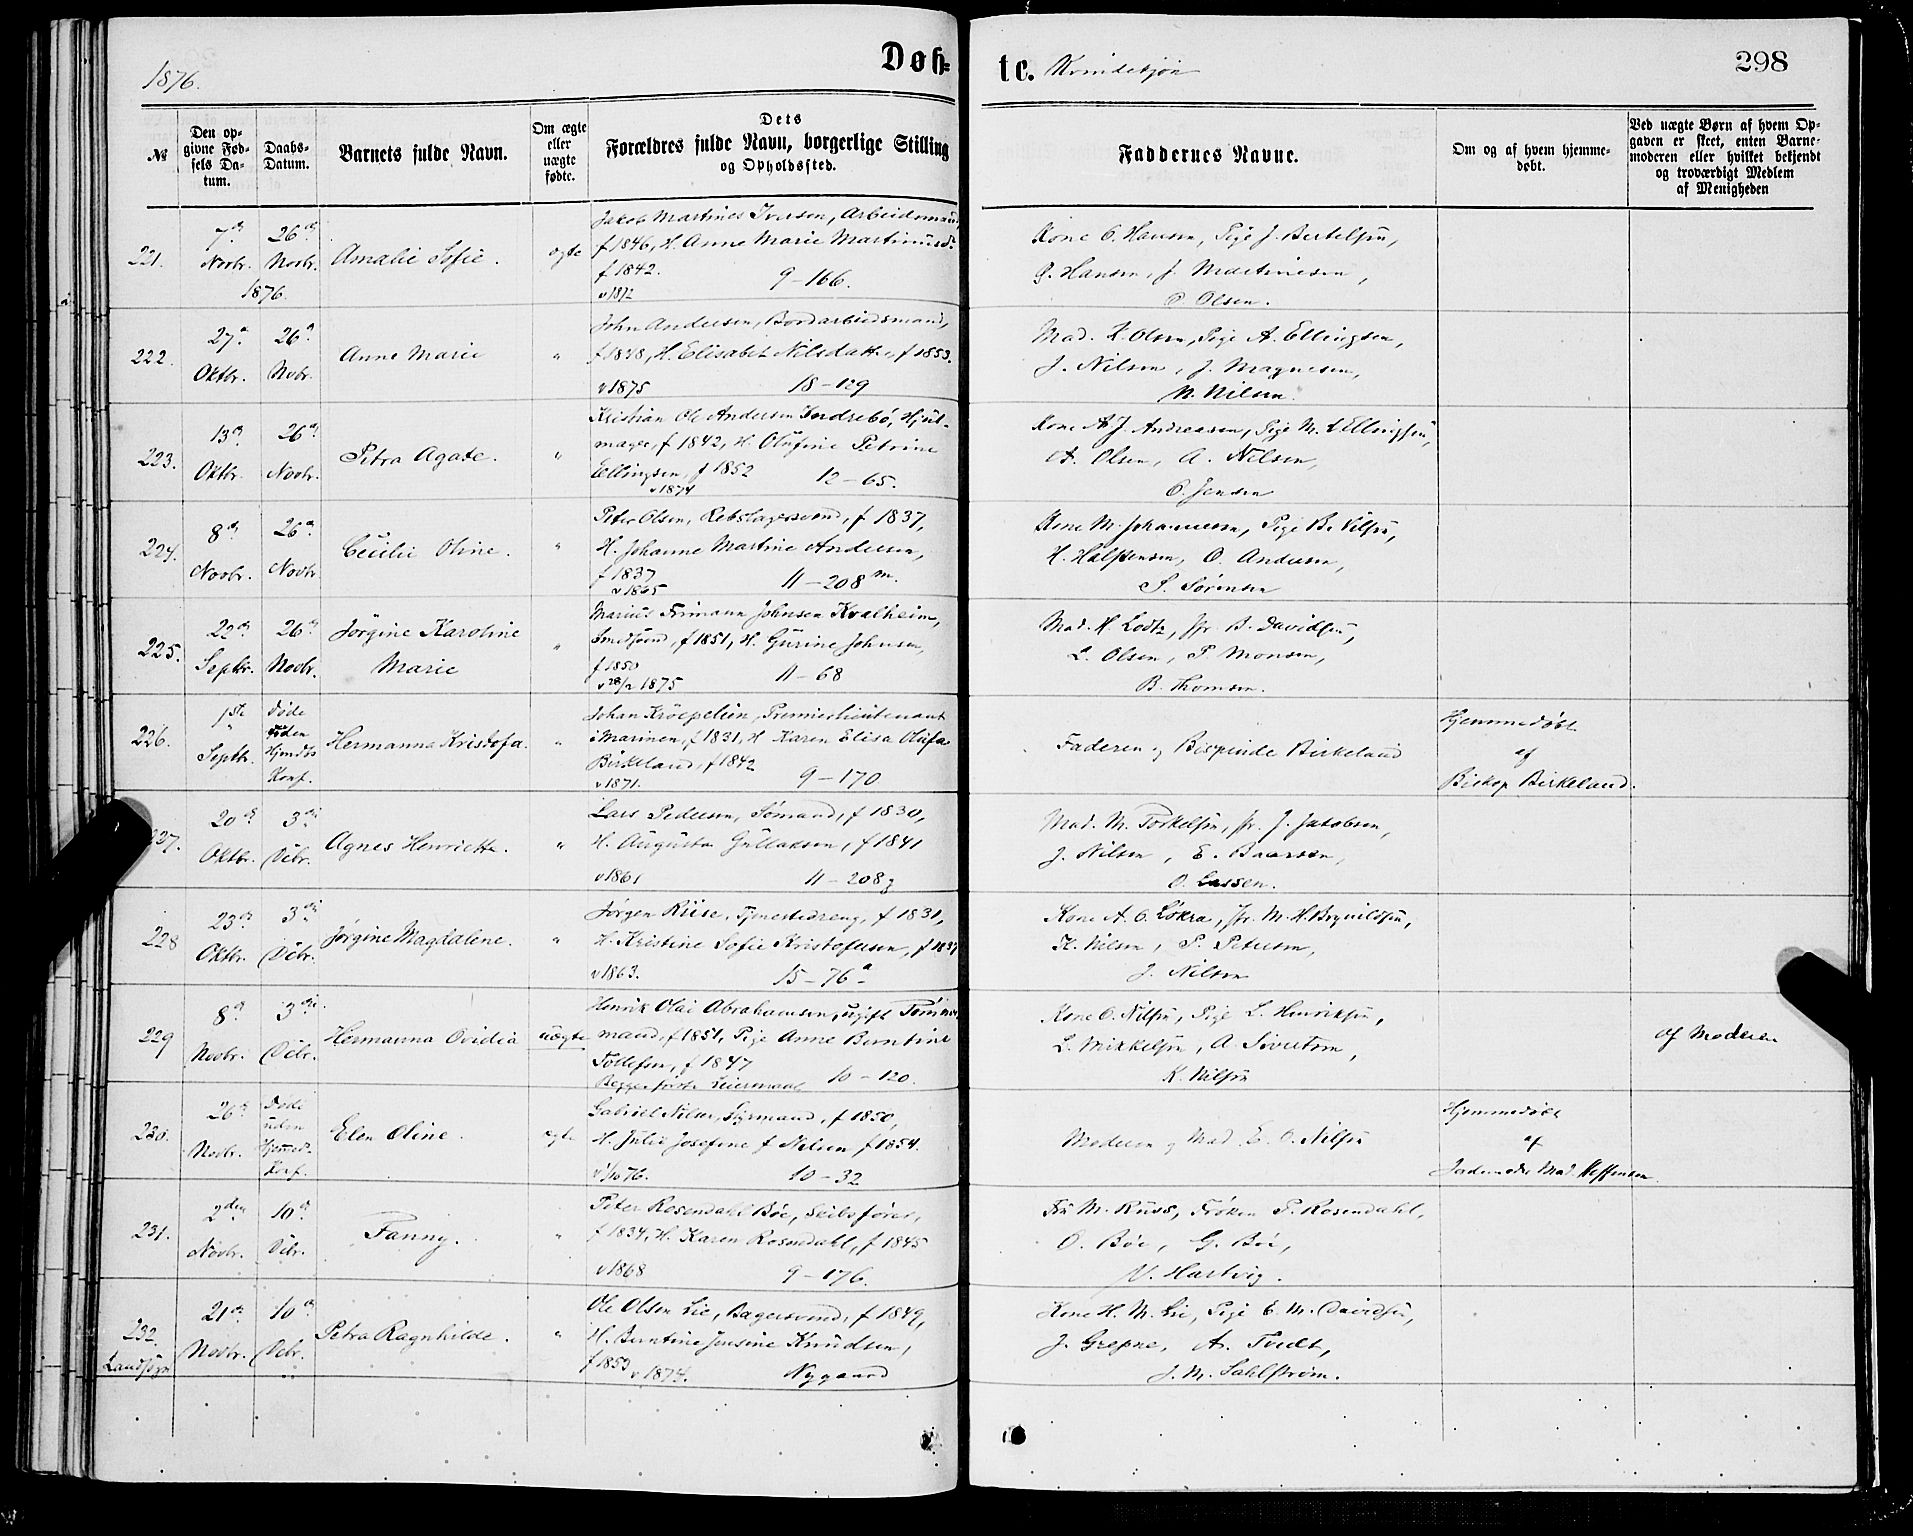 1876.
Døb-
te. Kvindekjøn
298
№
Den op-
givne Fød-
sels Da-
tum.
Daabs-
Datum.
Barnets fulde Navn.
Om ægte
eller
uægte
fødte.
Dets
Forældres fulde Navn, borgerlige Stilling
og Opholdssted.
Faddernes Navne.
Om og af hvem hjemme-
døbt.
Ved uægte Børn af hvem Op-
gaven er skeet, enten Barne-
moderen eller hvilket bekjendt
og troværdigt Medlem
af Menigheden
221.
7de Novbr.
1876.
26de Novbr.
Amalie Sofie.
ægte
Jakob Martines Iversen, Arbeidsmand,
f 1846, H. Anne Marie Martinusd.
f 1842.
v 1872
9-166.
Kone C. Hansen, Pige J. Bertelsen,
G. Hansen, J. Martinesen,
O. Olsen.
222.
27de Oktbr.
26de Nvbr.
Anne Marie
"
John Andersen, Bordarbeidsmand,
f 1848, H. Elisabet Nilsdatter, f 1853.
v 1875
18-129
Mad. K. Olsen, Pige A. Ellingsen,
J. Nilsen, J. Magnesen,
N. Nilsen.
223.
13de Oktbr.
26de Novbr.
Petra Agate.
"
Kristian Ole Andersen Indrebø, Hjul-
mager, f 1842, H. Olufine Petrine
Ellingsen, f 1852
v 1874
12-65.
Kone A. J. Andreasen, Pige M. Ellingsen,
A. Olsen, A. Nilsen,
O. Jensen
224.
8de Novbr.
26de Novbr
Cecilie Oline.
"
Peter Olsen, Rebslagersvend, f 1837,
H. Johanne Martine Andersen,
f 1837
v 1865
11-208 m.
Kone M. Johannesen, Pige B. Nilsen,
H. Halstensen, O. Andersen,
S. Sørensen
225.
22de Septbr.
26de Novbr.
Jørgine Karoline
Marie
"
Marius Firmann Johnsen Kvalheim,
Smedsvend, f 1851, H. Gurine Johnsen,
f 1850
v 28/2 1875
11-68
Mad. H. Lodtz, Jfr. B. Davidsen,
L. Olsen, P. Monsen,
B. Thomsen.
226.
1ste Septbr.
Døde
uden
Hjemdbs
Konf.
Hermanna Kristofa.
"
Johan Kröepelien, Premierlieutenant
i Marinen, f 1831, H Karen Elisa Olufa
Birkeland, f 1842
v 1871.
9-170
Faderen og Bispinde Birkeland
Hjemmedøbt
af
Biskop Birkeland.
237.
20de Oktbr.
3die Dcbr.
Agnes Henriette.
"
Lars Pedersen, Sømand, f 1830,
H. Augusta Gullaksen, f 1841
v 1861
11-208 g
Mad. M. Torkelsen, Jfr. J. Jakobsen,
J. Nilsen, E. Baarsen,
O. Lassen.
228
23de Oktbr.
3die Dcbr.
Jørgine Magdalene.
"
Jørgen Riise, Tjenestedreng, f 1831,
H. Kristine Sofie Kristofersen, f 1837
v 1863.
15-76 a
Kone A. O. Løkra, Jfr. M. H. Brynildsen,
K. Nilsen, P. Petersen,
J. Nilsen
229
8de Novbr.
3die Dcbr.
Hermanna Ovidia
uægte
Henrik Olai Abrahamsen, ugift Tømmer-
mand, f 1851, Pige Anne Berntine
Tollefsen, f 1847
Begges første Leiermaal 10-120.
Kone O. Nilsen, Pige L. Henriksen,
L. Mikkelsen, A. Sivertsen,
K. Nilsen
af Moderen
230.
26de Novbr.
Døde
uden
Hjemmed-
Konf.
Elen Oline.
ægte
Gabriel Nilsen, Styrmand, f 1850,
H. Julie Josefine f Nilsen f 1854.
v 1/10 76.
10-32
Moderen og Mad. E. O. Nilsen
Hjemmedøbt
af
Jordemoder Mad. Steffensen
231.
2den Novbr.
10de Dcbr.
Fanny.
"
Peter Rosendahl Böe, Skibsfører,
f 1834, H. Karen Rosendahl, f 1845
v 1868
9-176.
Fru M. Russ, Frøken P. Rosendahl,
O. Böe, G. Böe,
V. Hartvig.
232
Landsogn
21de Novbr.
10de Dcbr.
Petra Ragnhilde.
"
Ole Olsen Lie, Bagersvend, f 1849,
H. Berntine Jensine Knudsen,
f 1853
v 1874.
Nygaard
Kone H. M. Lie, Pige E. M. Davidsen,
J. Grepne, A. Tvedt,
J. M. Sahlstrøm.